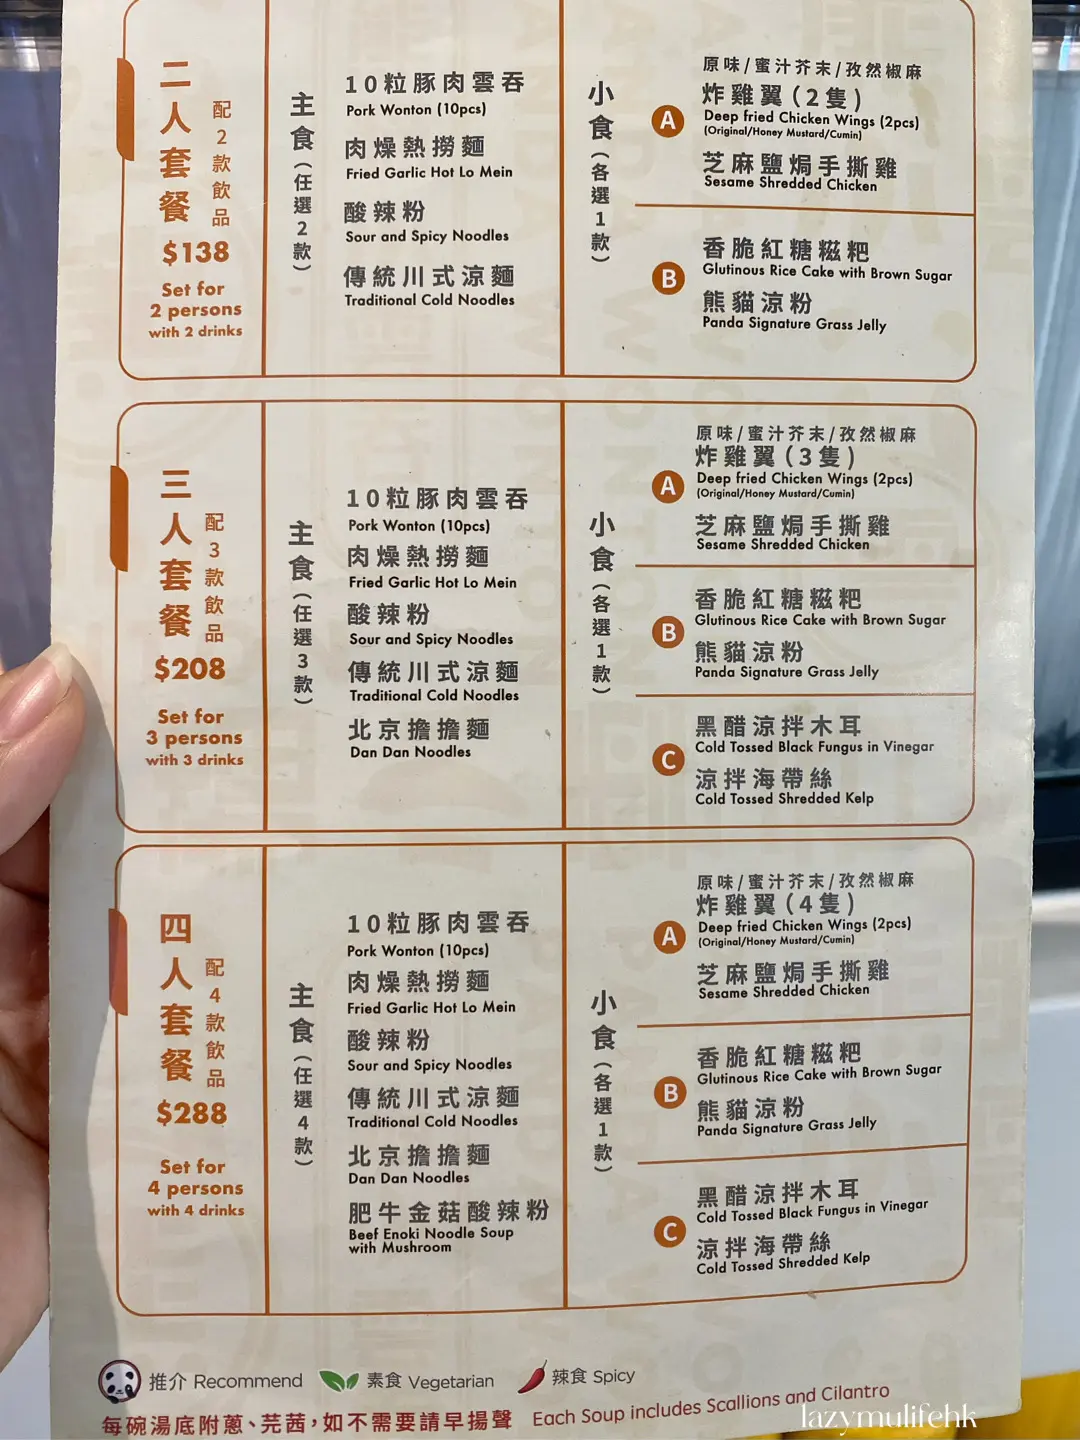 二人套餐
配2款飲品
$138
Set for
2 persons
with 2 drinks
主食（任選2款）
10粒豚肉雲吞
Pork Wonton (10pcs)
肉燥熱撈麵
Fried Garlic Hot Lo Mein
酸辣粉
Sour and Spicy Noodles
傳統川式涼麵
Traditional Cold Noodles
小食（各選1款）
A
原味/蜜汁芥末/孜然椒麻
炸雞翼(2隻)
Deep fried Chicken Wings (2pcs)
(Original/Honey Mustard/Cumin)
芝麻鹽焗手撕雞
Sesame Shredded Chicken
B
香脆紅糖糍粑
Glutinous Rice Cake with Brown Sugar
熊貓涼粉
Panda Signature Grass Jelly
三人套餐
配3款飲品
$208
Set for
3 persons
with 3 drinks
主食（任選3款）
10粒豚肉雲吞
Pork Wonton (10pcs)
肉燥熱撈麵
Fried Garlic Hot Lo Mein
酸辣粉
Sour and Spicy Noodles
傳統川式涼麵
Traditional Cold Noodles
北京擔擔麵
Dan Dan Noodles
小食（各選1款）
A
原味/蜜汁芥末/孜然椒麻
炸雞翼(3隻)
Deep fried Chicken Wings (2pcs)
(Original/Honey Mustard/Cumin)
芝麻鹽焗手撕雞
Sesame Shredded Chicken
B
香脆紅糖糍粑
Glutinous Rice Cake with Brown Sugar
熊貓涼粉
Panda Signature Grass Jelly
C
黑醋涼拌木耳
Cold Tossed Black Fungus in Vinegar
涼拌海帶絲
Cold Tossed Shredded Kelp
四人套餐
配4款飲品
$288
Set for
4 persons
with 4 drinks
主食（任選4款）
10粒豚肉雲吞
Pork Wonton (10pcs)
肉燥熱撈麵
Fried Garlic Hot Lo Mein
酸辣粉
Sour and Spicy Noodles
傳統川式涼麵
Traditional Cold Noodles
北京擔擔麵
Dan Dan Noodles
肥牛金菇酸辣粉
Beef Enoki Noodle Soup
with Mushroom
小食（各選1款）
A
原味/蜜汁芥末/孜然椒麻
炸雞翼(4隻)
Deep fried Chicken Wings (2pcs)
(Original/Honey Mustard/Cumin)
芝麻鹽焗手撕雞
Sesame Shredded Chicken
B
香脆紅糖糍粑
Glutinous Rice Cake with Brown Sugar
熊貓涼粉
Panda Signature Grass Jelly
C
黑醋涼拌木耳
Cold Tossed Black Fungus in Vinegar
涼拌海帶絲
Cold Tossed Shredded Kelp
推介 Recommend 素食 Vegetarian 辣食 Spicy
每碗湯底附蔥、芫茜，如不需要請早揚聲 Each Soup includes Scallions and Cilantro
lazymulifehk